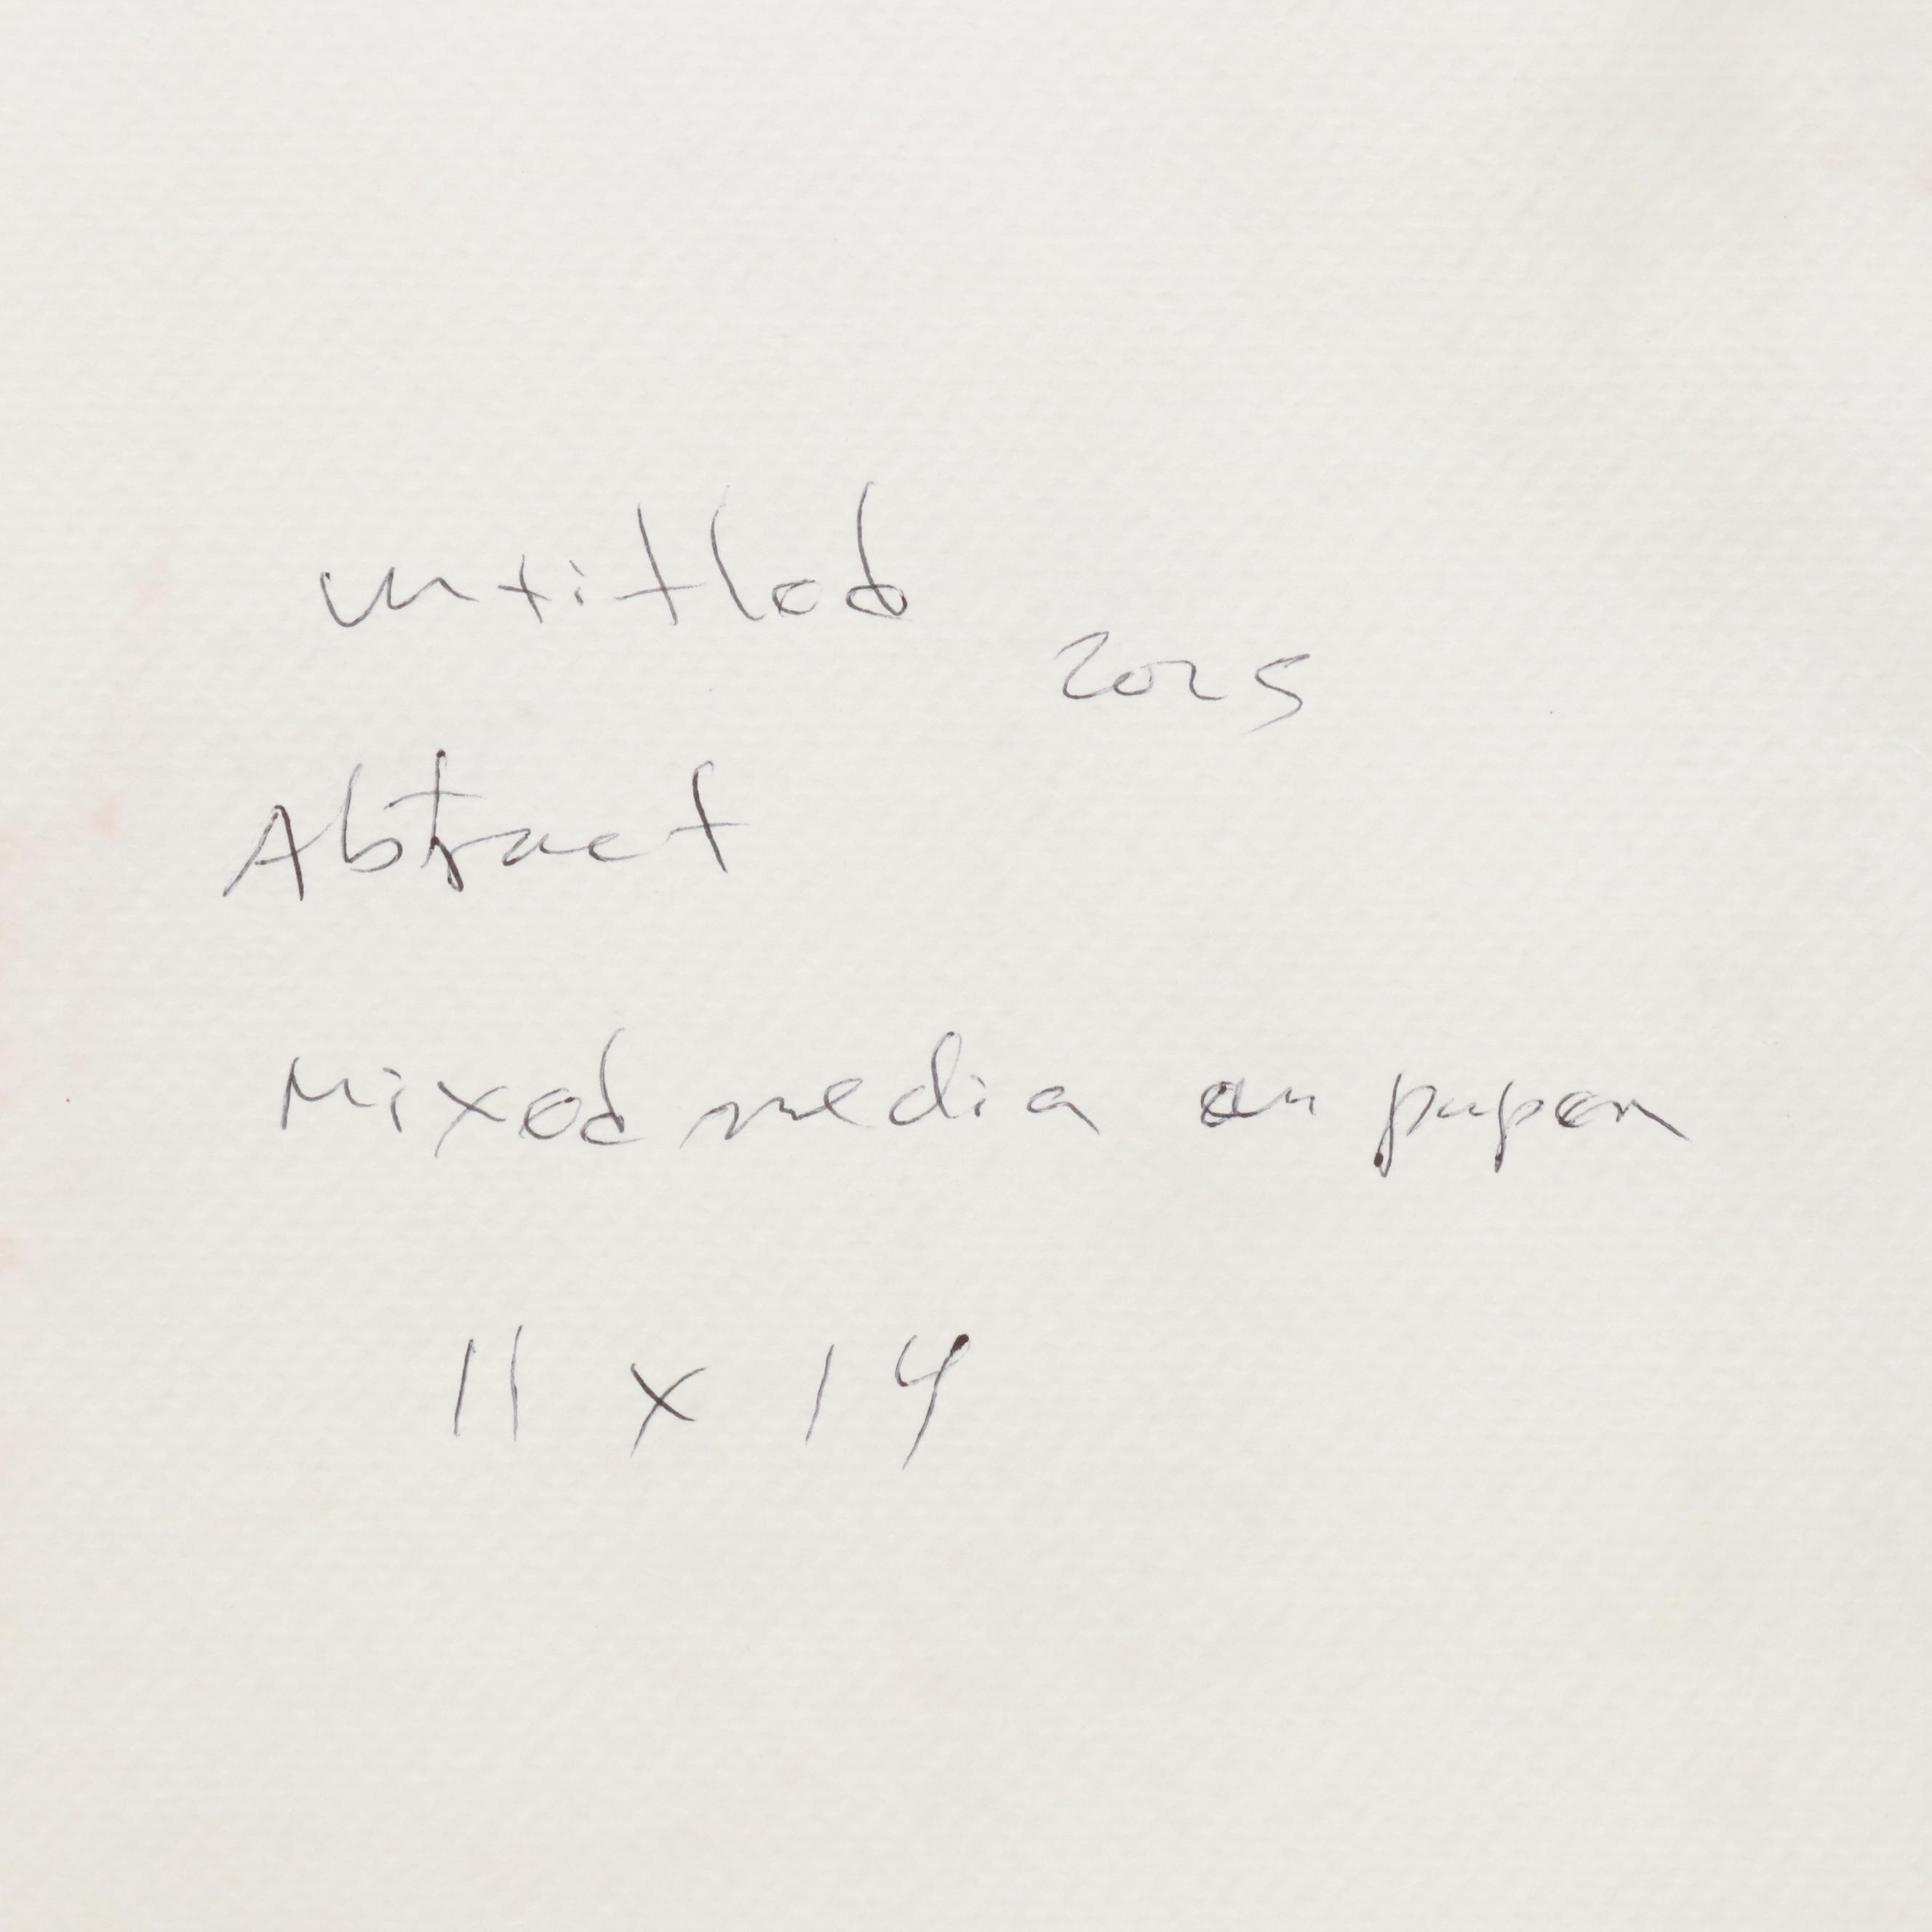 untitled
2025
Abtract
Mixed media on paper
11 x 14